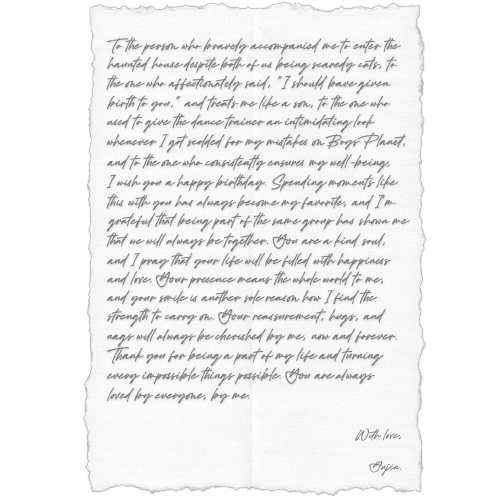 To the person who bravely accompanied me to enter the
haunted house despite both of us being scaredy cats, to
the one who affectionately said, "I should have given
birth to you," and treats me like a son, to the one who
used to give the dance trainer an intimidating look
whenever I got scolded for my mistakes on Boys Planet,
and to the one who consistently ensures my well-being,
I wish you a happy birthday. Spending moments like
this with you has always become my favorite, and I'm
grateful that being part of the same group has shown me
that we will always be together. You are a kind soul,
and I pray that your life will be filled with happiness
and love. Your presence means the whole world to me,
and your smile is another sole reason how I find the
strength to carry on. Your reassurement, hugs, and
nags will always be cherished by me, now and forever.
Thank you for being a part of my life and turning
every impossible things possible. You are always
loved by everyone, by me.
With love,
Yujin.